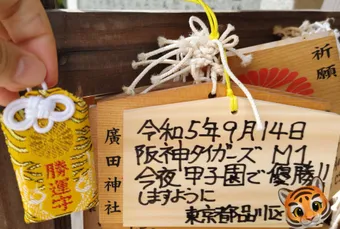 祈願
勝運守
廣田神社
令和5年9月14日
阪神タイガース M1
今夜 甲子園で優勝!!
しますように
東京都品川区